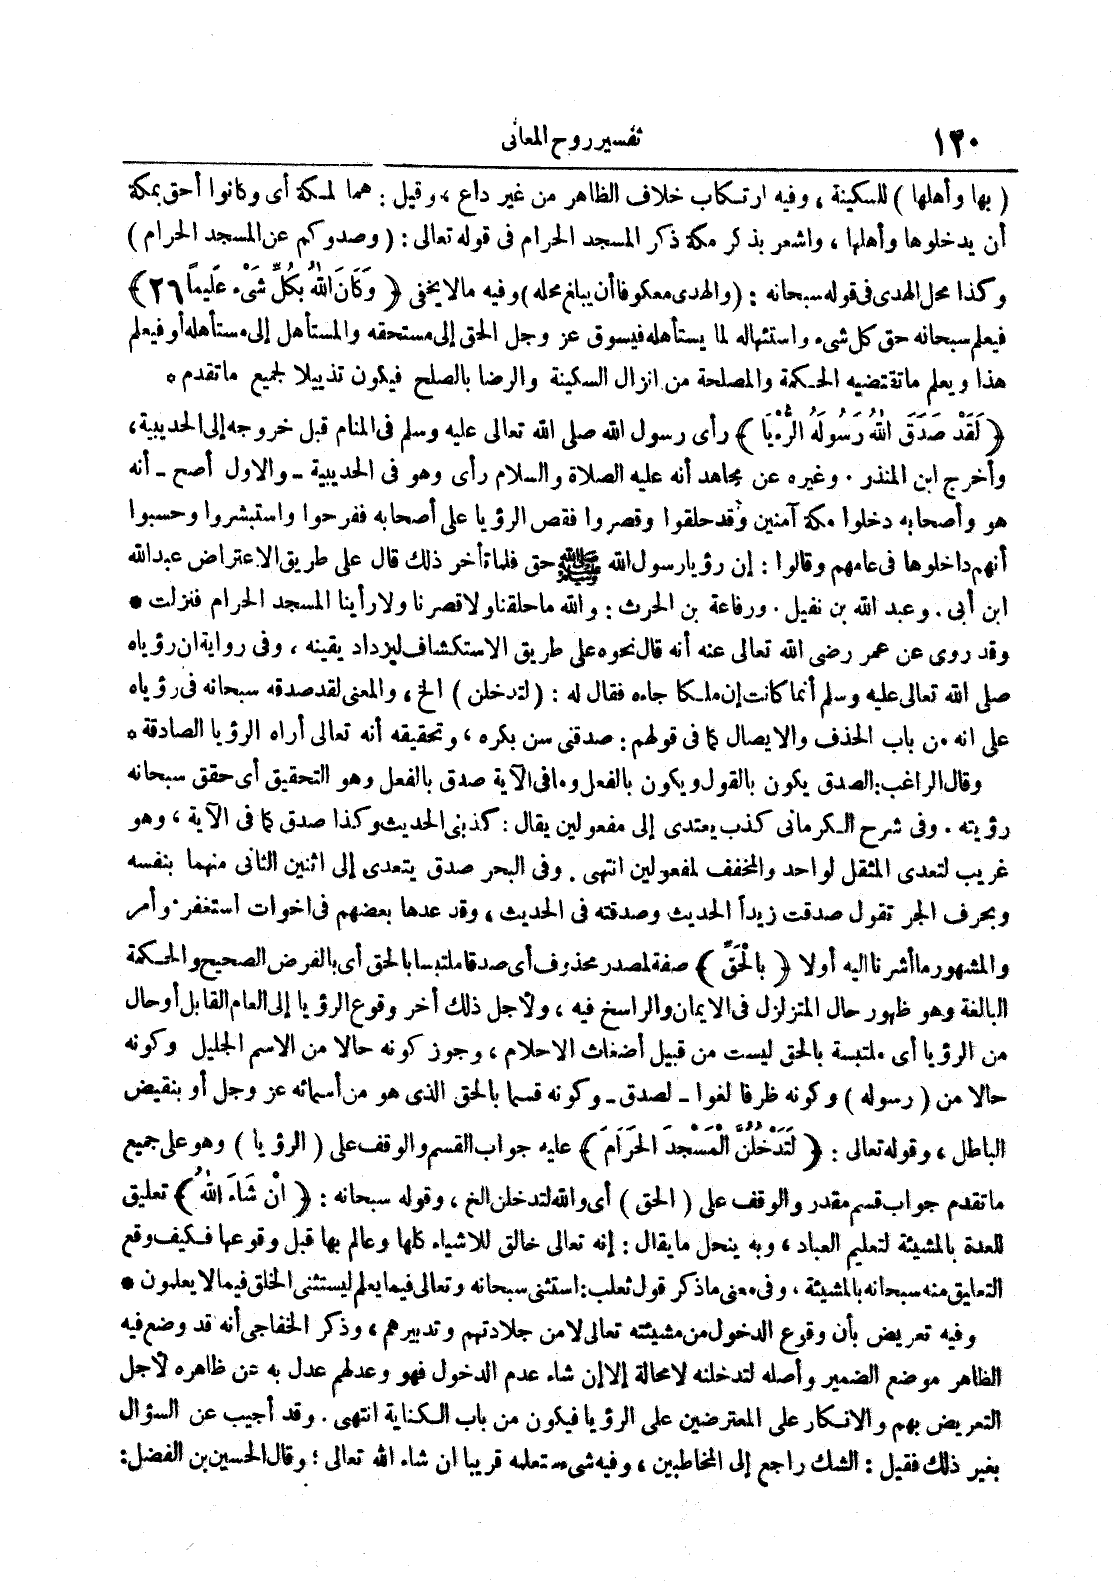 ١٢٠
تفسير روح المعانى
( بها وأهلها ) للسكينة ، وفيه ارتكاب خلاف الظاهر من غير داع ، وقيل : هما لمكة أى وكانوا أحق بمكة
أن يدخلوها وأهلها ، واشعر بذكر مكة ذكر المسجد الحرام فى قوله تعالى : ( وصدوكم عن المسجد الحرام )
وكذا محل الهدى فى قوله سبحانه : (والهدى معكوفا أن يبلغ محله) وفيه مالا يخفى ﴿ وَكَانَ اللهُ بِكُلِّ شَىْءٍ عَلِيمًا ٢٦ ﴾
فيعلم سبحانه حق كل شىء واستئهاله لما يستأهله فيسوق عز وجل الحق إلى مستحقه والمستأهل إلى مستأهله أو فيعلم
هذا ويعلم ماتقتضيه الحكمة والمصلحة من انزال السكينة والرضا بالصلح فيكون تذييلا لجميع ماتقدم *
﴿ لَقَدْ صَدَقَ اللهُ رَسُولَهُ الرُّءْيَا ﴾ رأى رسول الله صلى الله تعالى عليه وسلم فى المنام قبل خروجه إلى الحديبية ،
وأخرج ابن المنذر . وغيره عن مجاهد أنه عليه الصلاة والسلام رأى وهو فى الحديبية ـ والاول أصح ـ أنه
هو وأصحابه دخلوا مكة آمنين وقد حلقوا وقصروا فقص الرؤيا على أصحابه ففرحوا واستبشروا وحسبوا
أنهم داخلوها فى عامهم وقالوا : إن رؤيا رسول الله ﷺ حق فلما تأخر ذلك قال على طريق الاعتراض عبد الله
ابن أبى . وعبد الله بن نفيل . ورفاعة بن الحرث : والله ماحلقنا ولا قصرنا ولا رأينا المسجد الحرام فنزلت *
وقد روى عن عمر رضى الله تعالى عنه أنه قال نحوه على طريق الاستكشاف ليزداد يقينه ، وفى رواية ان رؤياه
صلى الله تعالى عليه وسلم أنما كانت إن ملكا جاءه فقال له : ( لتدخلن ) الخ ، والمعنى لقد صدقه سبحانه فى رؤياه
على انه من باب الحذف والايصال كما فى قولهم : صدقنى سن بكره ، وتحقيقه أنه تعالى أراه الرؤيا الصادقة *
وقال الراغب : الصدق يكون بالقول ويكون بالفعل ومافى الآية صدق بالفعل وهو التحقيق أى حقق سبحانه
رؤيته . وفى شرح الكرمانى كذب يعتدى إلى مفعولين يقال : كذبنى الحديث وكذا صدق كما فى الآية ، وهو
غريب لتعدى المثقل لواحد والمخفف لمفعولين انتهى . وفى البحر صدق يتعدى إلى اثنين الثانى منهما بنفسه
وبحرف الجر تقول صدقت زيداً الحديث وصدقته فى الحديث ، وقد عدها بعضهم فى اخوات استغفر . وأمر
والمشهور ما أشرنا اليه أولا ﴿ بِالْحَقِّ ﴾ صفة لمصدر محذوف أى صدقا ملتبسا بالحق أى بالغرض الصحيح والحكمة
البالغة وهو ظهور حال المتزلزل فى الايمان والراسخ فيه ، ولاجل ذلك أخر وقوع الرؤيا إلى العام القابل أو حال
من الرؤيا أى ملتبسة بالحق ليست من قبيل أضغاث الاحلام ، وجوز كونه حالا من الاسم الجليل وكونه
حالا من ( رسوله ) وكونه ظرفا لغوا ـ لصدق ـ وكونه قسما بالحق الذى هو من أسمائه عز وجل أو بنقيض
الباطل ، وقوله تعالى : ﴿ لَتَدْخُلُنَّ الْمَسْجِدَ الحَرَامَ ﴾ عليه جواب القسم والوقف على ( الرؤيا ) وهو على جميع
ماتقدم جواب قسم مقدر والوقف على ( الحق ) أى والله لتدخلن الخ ، وقوله سبحانه : ﴿ انْ شَاءَ اللهُ ﴾ تعليق
للعدة بالمشيئة لتعليم العباد ، وبه ينحل مايقال : إنه تعالى خالق للاشياء كلها وعالم بها قبل وقوعها فكيف وقع
التعليق منه سبحانه بالمشيئة ، وفى معنى ماذكر قول ثعلب : استثنى سبحانه وتعالى فيما يعلم ليستثنى الخلق فيما لا يعلمون *
وفيه تعريض بأن وقوع الدخول من مشيئته تعالى لا من جلادتهم وتدبيرهم ، وذكر الخفاجى أنه قد وضع فيه
الظاهر موضع الضمير وأصله لتدخلنه لا محالة إلا إن شاء عدم الدخول فهو وعدلهم عدل به عن ظاهره لأجل
التعريض بهم والانكار على المعترضين على الرؤيا فيكون من باب الكناية انتهى . وقد أجيب عن السؤال
بغير ذلك فقيل : الشك راجع إلى المخاطبين ، وفيه شىء ستعلمه قريبا ان شاء الله تعالى ؛ وقال الحسين بن الفضل :